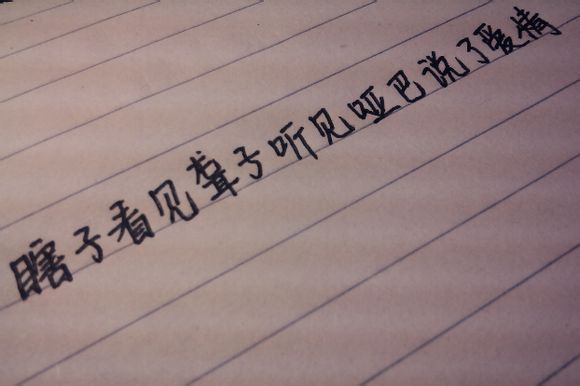 瞎子看见聋子听见哑巴说了爱情